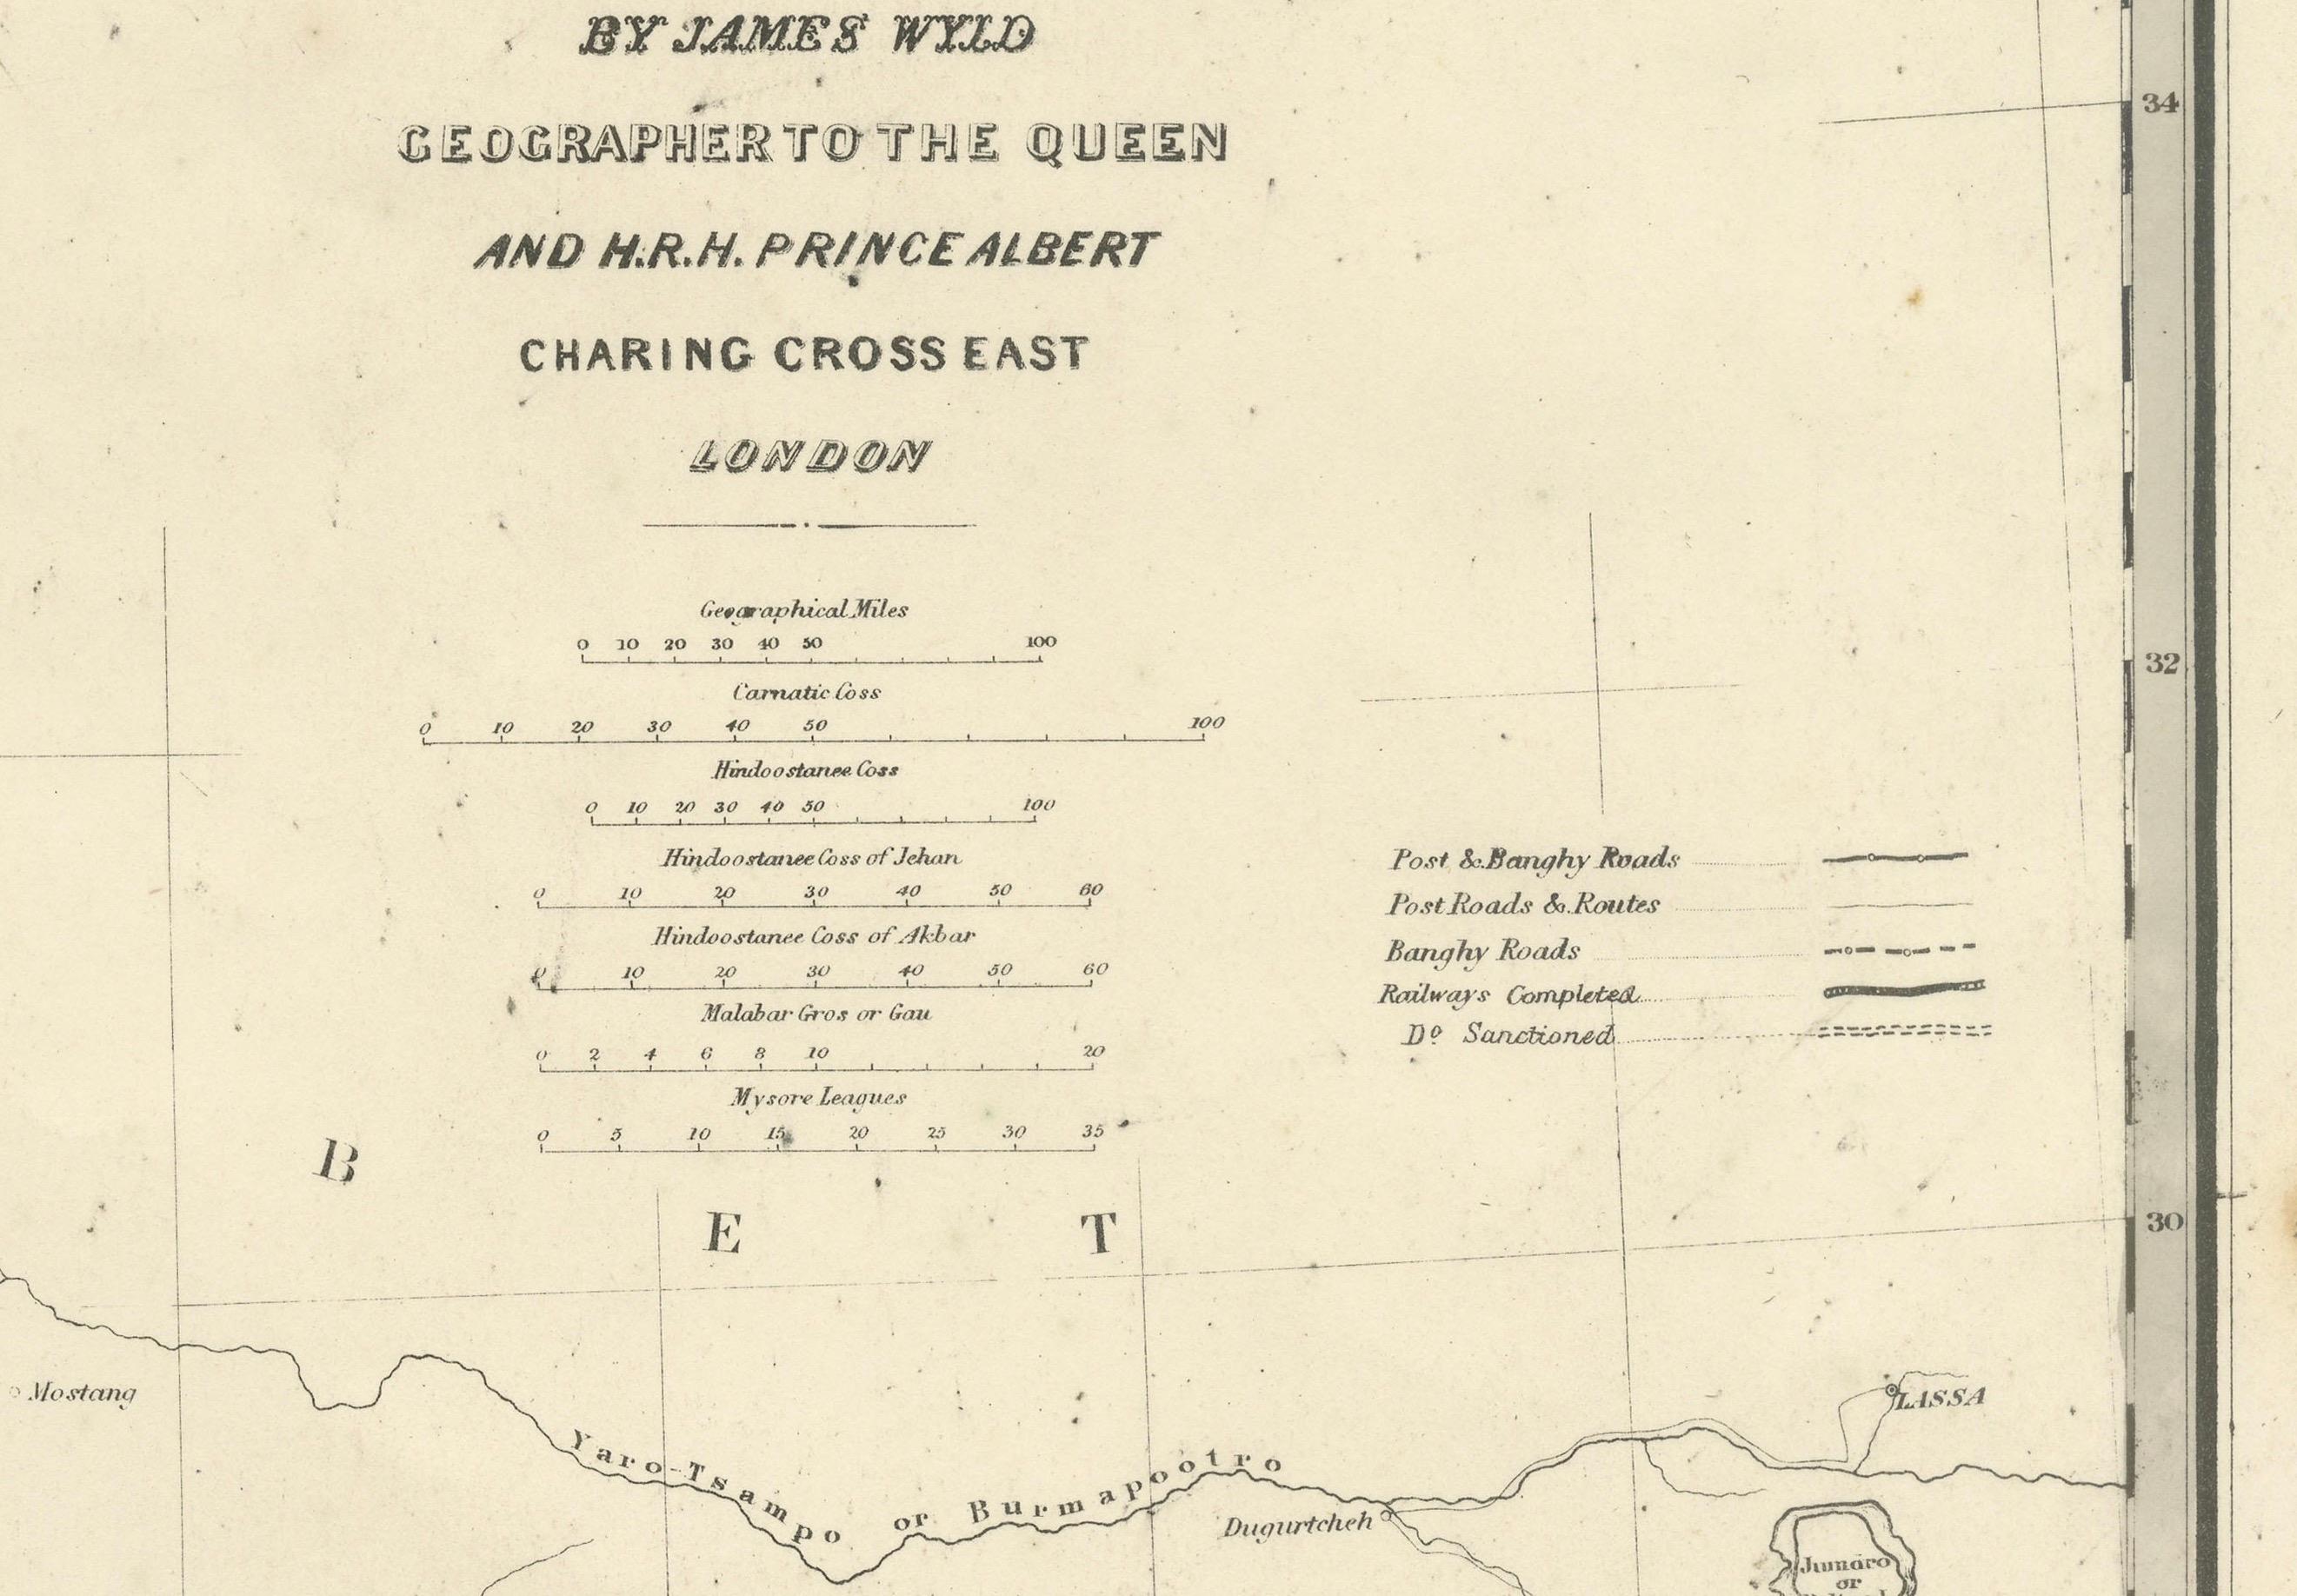 BY JAMES WYLD
GEOGRAPHER TO THE QUEEN
AND H.R.H. PRINCE ALBERT
CHARING CROSS EAST
LONDON
Geographical Miles
0 10 20 30 40 50 100
Carnatic Coss
0 10 20 30 40 50 100
Hindoostanee Coss
0 10 20 30 40 50 100
Hindoostanee Coss of Jehan
0 10 20 30 40 50 60
Hindoostanee Coss of Akbar
0 10 20 30 40 50 60
Malabar Gros or Gau
0 2 4 6 8 10 20
Mysore Leagues
0 5 10 15 20 25 30 35
Post & Banghy Roads
Post Roads & Routes
Banghy Roads
Railways Completed
Do Sanctioned
34
32
30
B E T
Mostang
Yaro-Tsampo or Burmapootro
Dugurtcheh
LASSA
Jumdro
or